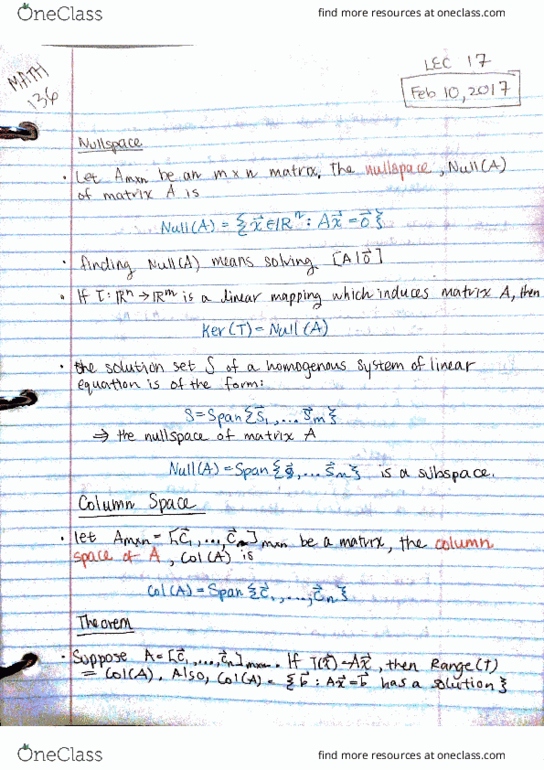 OneClass
find more resources at oneclass.com
MATH
136
LEC 17
Feb 10, 2017
Nullspace
· Let Amxn be an m x n matrix, The nullspace, Null(A)
of matrix A is
Null(A) = {x⃗ ∈ ℝⁿ : Ax⃗ = 0⃗}
· finding Null(A) means solving [A|0⃗]
· If T: ℝⁿ → ℝᵐ is a linear mapping which induces matrix A, then
Ker(T) = Null(A)
· the solution set S of a homogenous system of linear
equation is of the form:
S = Span{s⃗₁, ... s⃗m}
⇒ the nullspace of matrix A
Null(A) = Span{s⃗₁, ... s⃗m} is a subspace.
Column Space
· let Amxn = [c⃗₁, ..., c⃗n]mxn be a matrix, the column
space of A, Col(A) is
Col(A) = Span{c⃗₁, ..., c⃗n}
Theorem
· Suppose A = [c⃗₁, ..., c⃗n]mxn. If T(x⃗) = Ax⃗, then Range(T)
= Col(A). Also, Col(A) = {b⃗ : Ax⃗ = b⃗ has a solution}
OneClass
find more resources at oneclass.com